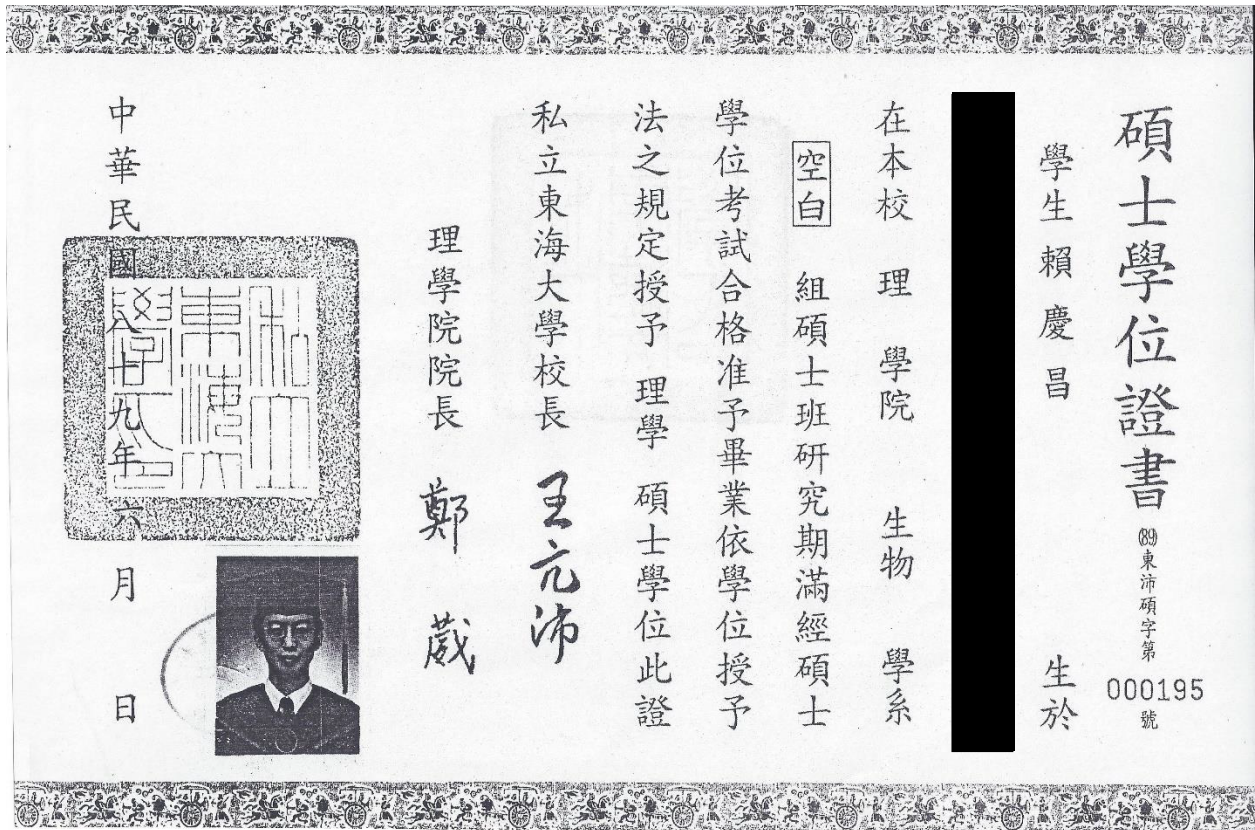 碩士學位證書
(89)東沛碩字第
000195
號
學生 賴慶昌 生於
在本校 理 學院 生物 學系
空白 組碩士班研究期滿經碩士
學位考試合格准予畢業依學位授予
法之規定授予 理學 碩士學位此證
私立東海大學校長 王亢沛
理學院院長 鄭 葳
中華民國八十九年六月 日
私立
東海大
學之印